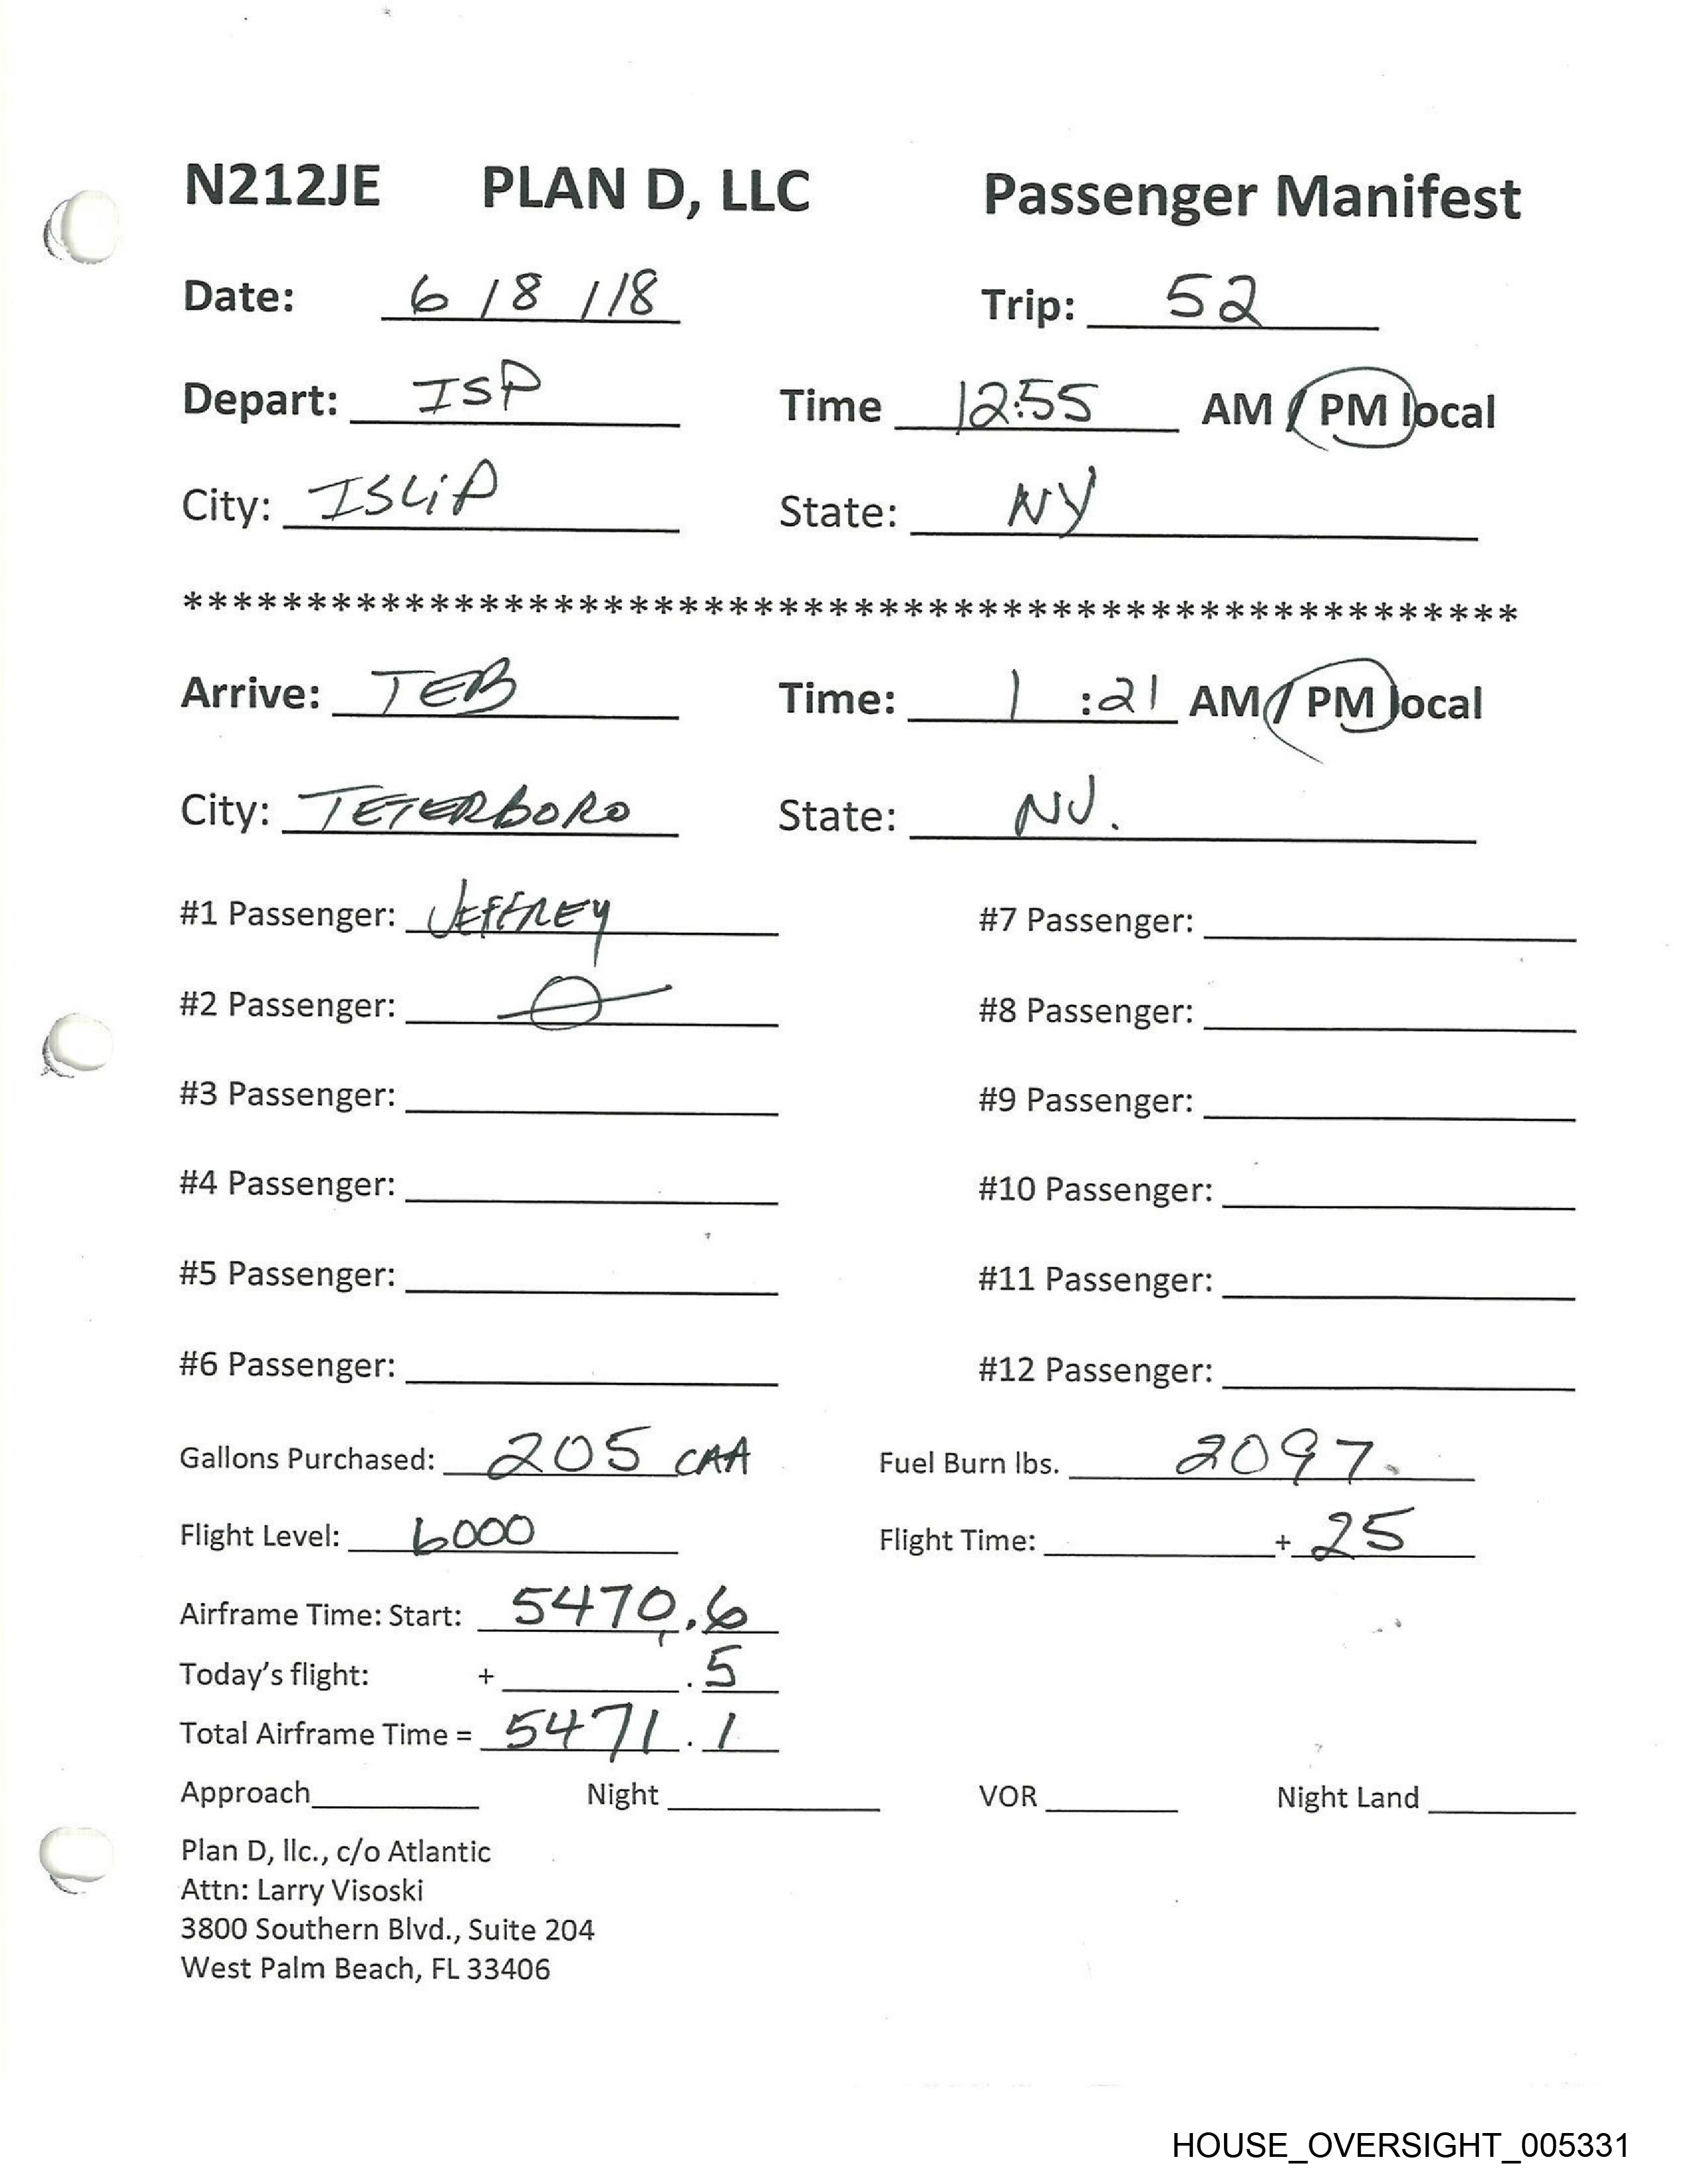 N212JE PLAN D, LLC Passenger Manifest
Date: 6/8/18 Trip: 52
Depart: ISP Time 12:55 AM / PM local
City: ISLiP State: NY
******************************************************
Arrive: TEB Time: 1:21 AM / PM local
City: TETERBORO State: NJ.
#1 Passenger: JEFFREY #7 Passenger:
#2 Passenger: #8 Passenger:
#3 Passenger: #9 Passenger:
#4 Passenger: #10 Passenger:
#5 Passenger: #11 Passenger:
#6 Passenger: #12 Passenger:
Gallons Purchased: 205 CAA Fuel Burn lbs. 2097.
Flight Level: 6000 Flight Time: + 25
Airframe Time: Start: 5470.6
Today's flight: + .5
Total Airframe Time = 5471.1
Approach Night VOR Night Land
Plan D, llc., c/o Atlantic
Attn: Larry Visoski
3800 Southern Blvd., Suite 204
West Palm Beach, FL 33406
HOUSE_OVERSIGHT_005331